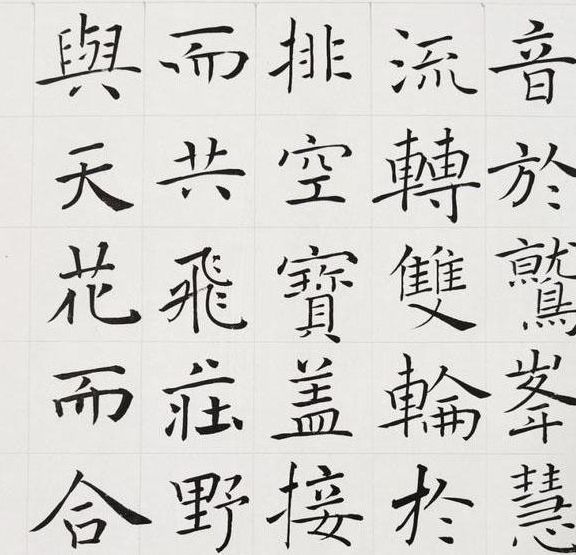 音於鷲峯慧
流轉雙輪於
排空寶盖接
而共飛莊野
與天花而合